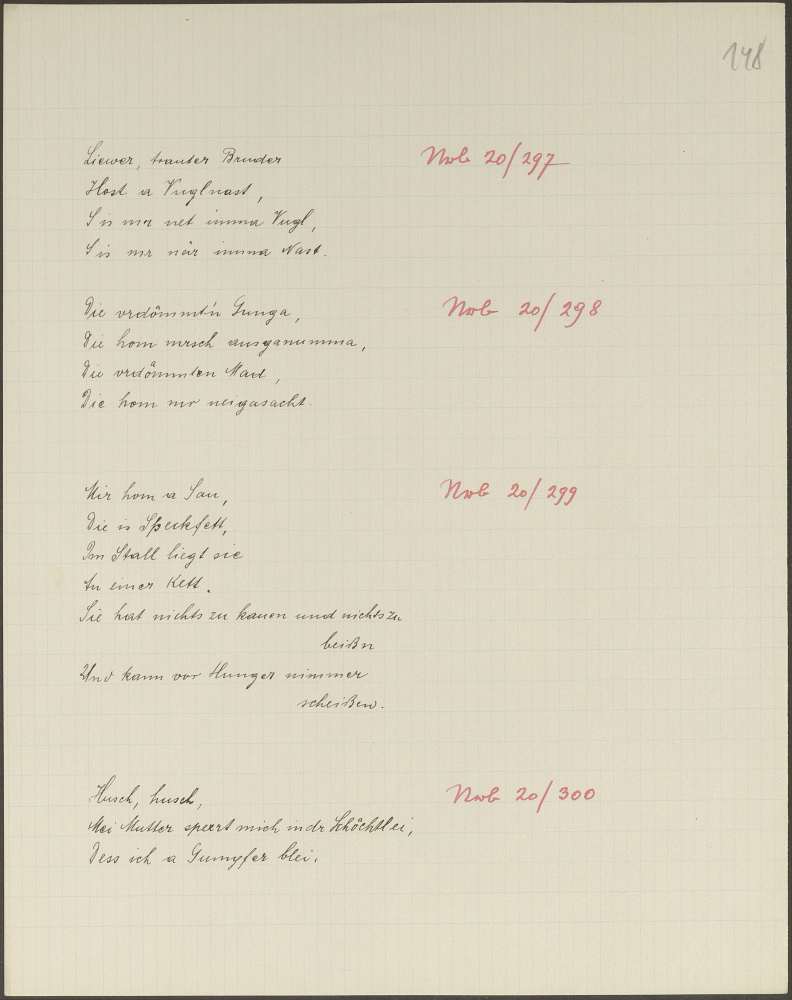 148
Liewer, trauter Bruder Nwb 20/297
Host a Vuglnast,
S is mr net imma Vugl,
S is mr när imma Nast.
Die vrdömmt'n Gunga, Nwb 20/298
Die hom mrsch ausganumma,
Die vrdömmten Mad,
Die hom mr neigasacht.
Mir hom a Sau, Nwb 20/299
Die is Speckfett,
Im Stall liegt sie
An einer Kett.
Sie hat nichts zu kauen und nichts zu
beißn
Und kann vor Hunger nimmer
scheißen.
Husch, husch, Nwb 20/300
Mei Mutter sperrt mich in dr Schöchtl ei,
Dess ich a Gumpfer blei.